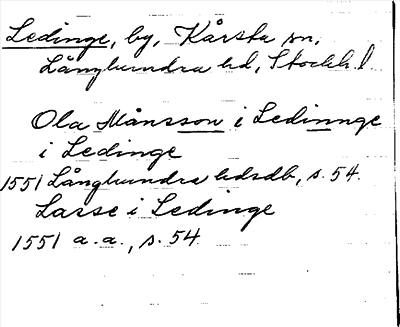 Ledinge, by, Kårsta sn,
Långhundra hd, Stockh. l.
Ola Månsson i Ledinnge
i Ledinge
1551 Långhundra hdsdb, s. 54.
Lasse i Ledinge
1551 a. a., s. 54.